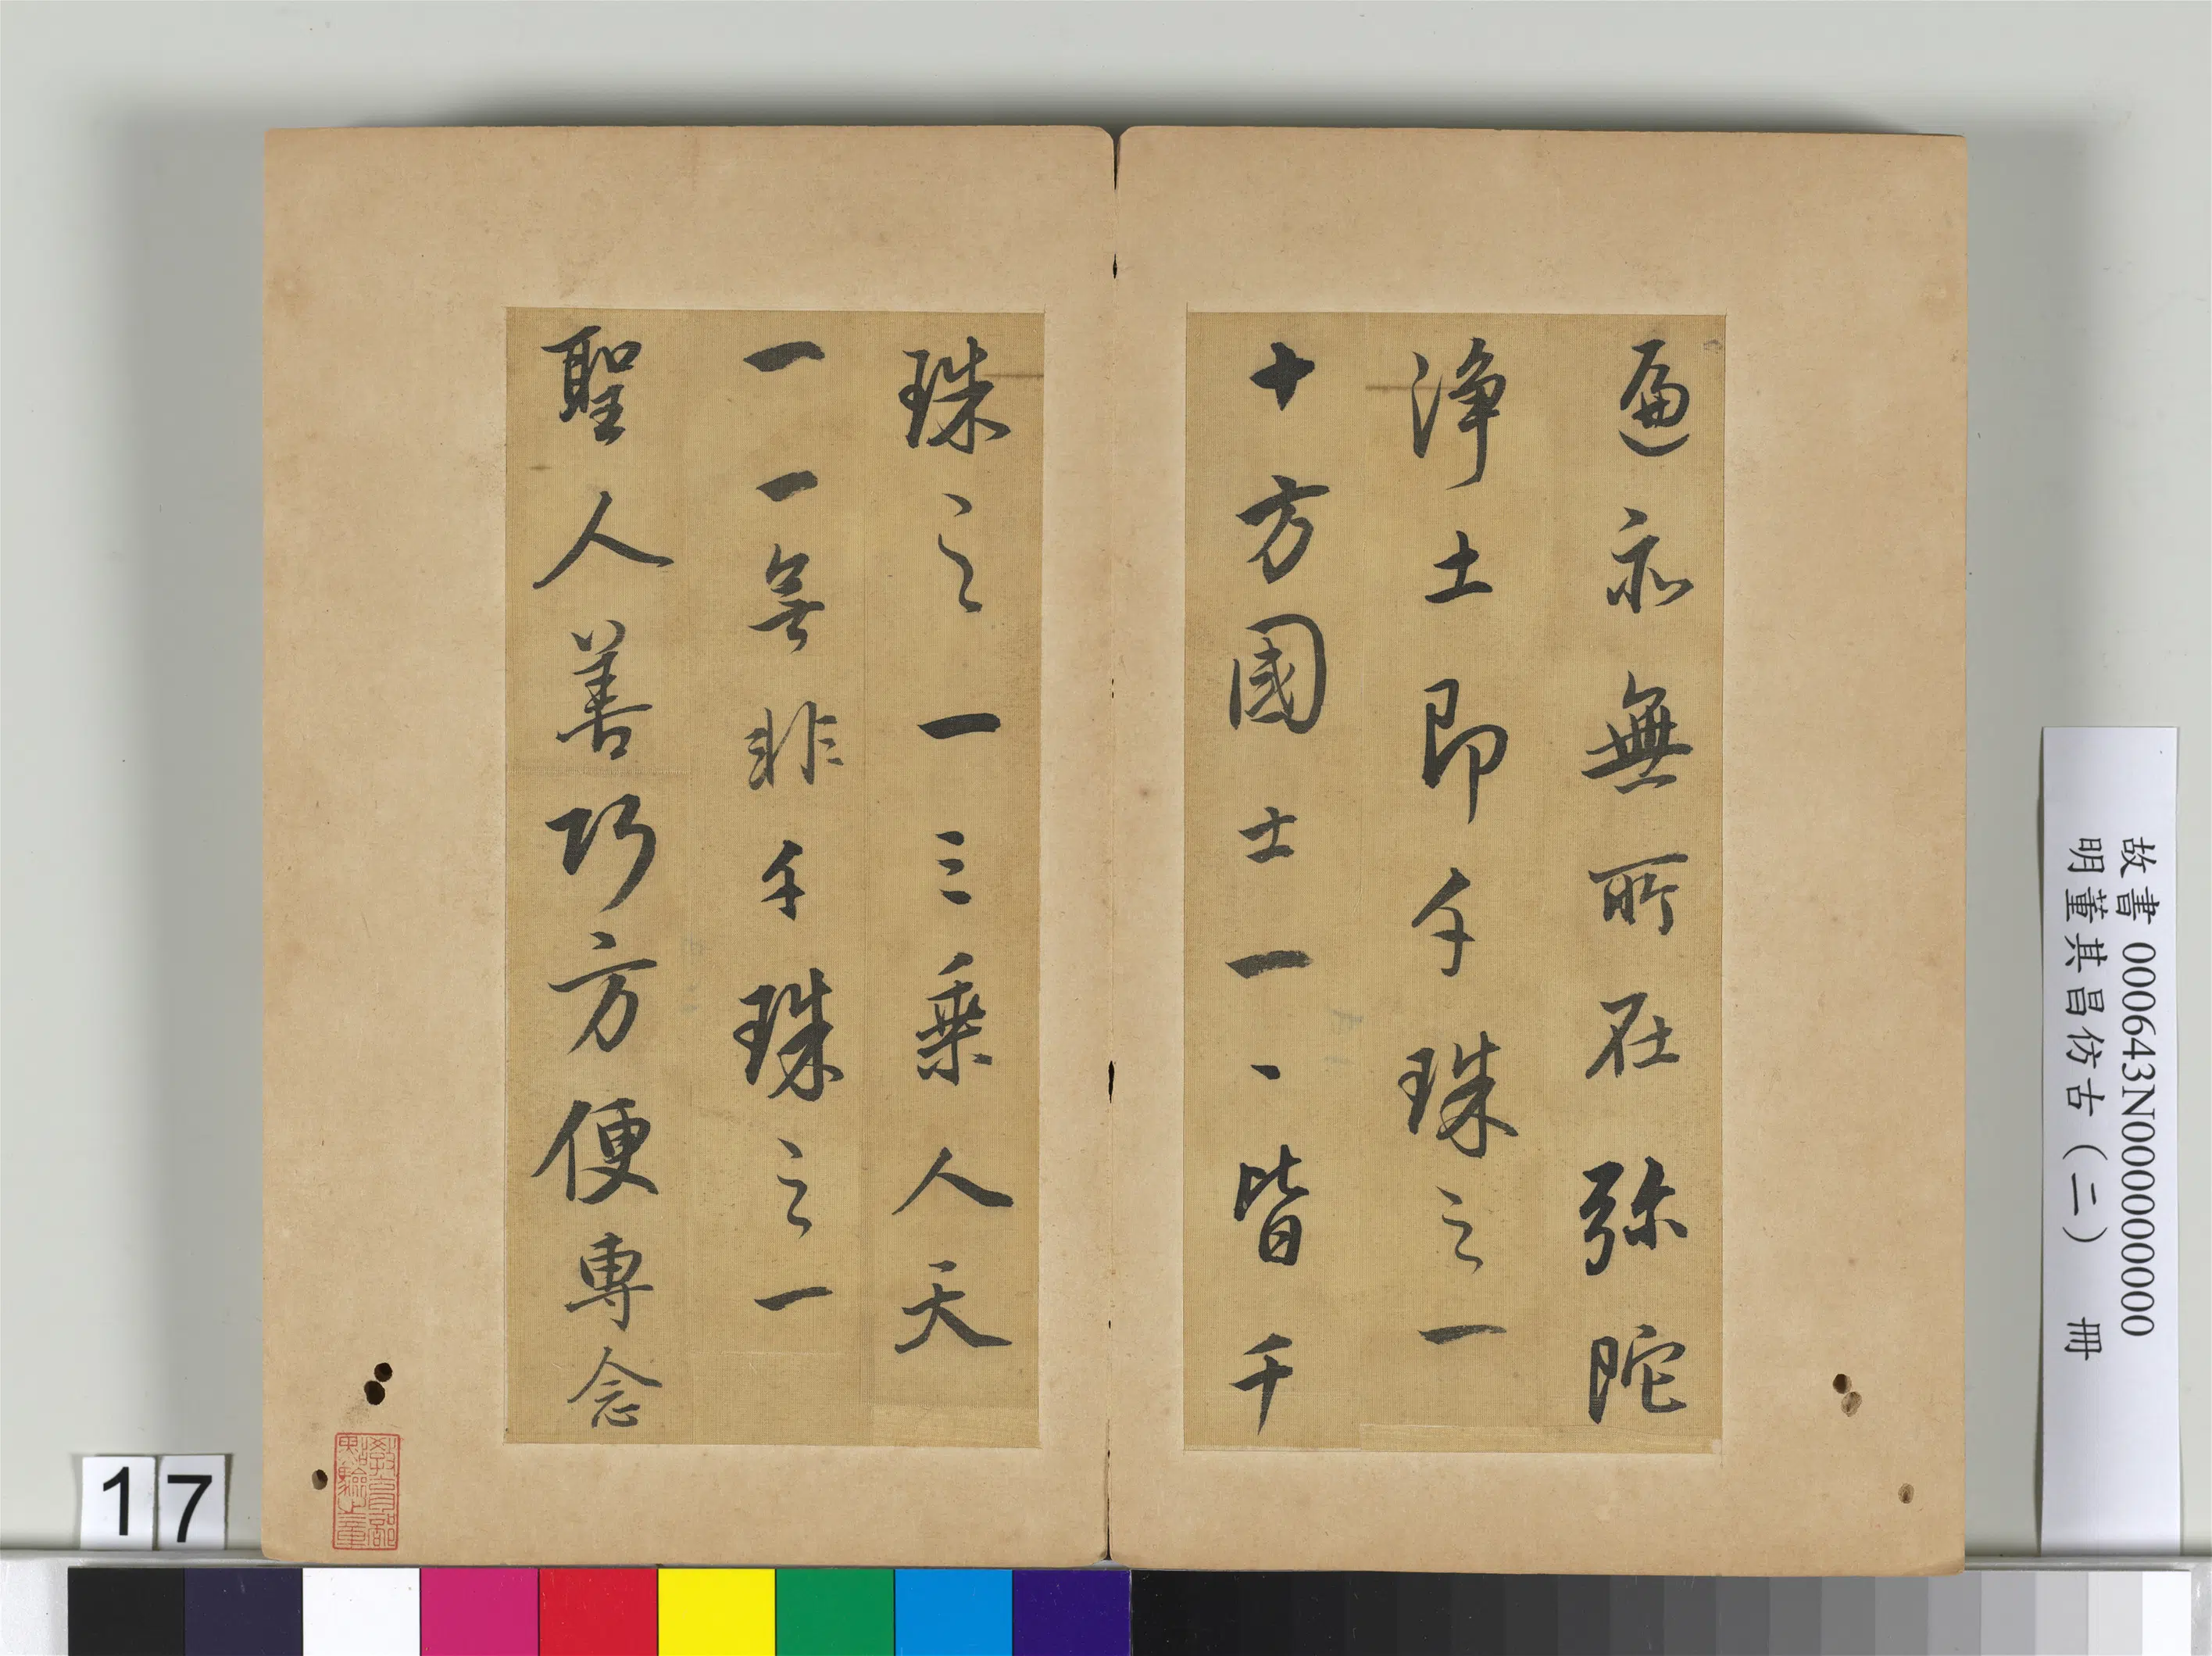 遍亦無所在弥陀
淨土即千珠之一
十方國土一、皆千
珠之一三乘人天
一一無非千珠之一
聖人善巧方便專念
教育部
點驗之章
故書 000643N000000000
明董其昌仿古（二） 冊
17